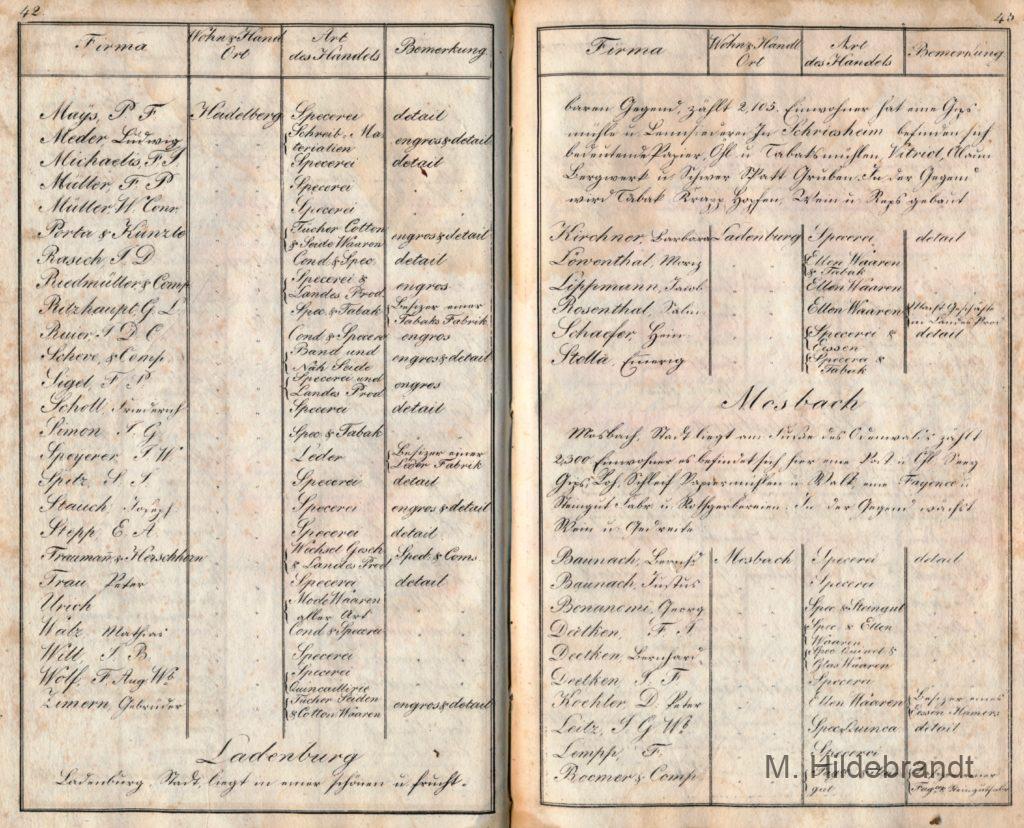 42.
Firma Wohn & Handl Ort Art des Handels Bemerkung
Mays, P F Heidelberg Specerei detail
Meder, Ludwig Schreib. Materialien engros & detail
Michaelis, F S Specerei detail
Müller, F P Specerei
Müller, W. Conr. Specerei
Porta & Künzle Tücher Cotton & Seide Waaren engros & detail
Rasich, J D Cond & Spec. detail
Riedmüller & Comp Specerei & Landes Prod engros
Ritzhaupt, G. L. Spec & Tabak Besizer einer Tabaks Fabrik
Ruer, J D C Cond & Specere engros
Scheve, & Comp Band und Näh Seide engros & detail
Sigel, F P Specerei und Landes Prod engros
Scholl, Friederich Specerei detail
Simon J. G Spec & Tabak
Speyerer, J W Leder Besizer einer Leder Fabrik
Spitz, S. J. Specerei detail
Stauch, Joseph Specerei engros & detail
Stepp, E. A. Specerei detail
Traumann & Herschhorn Wechsel Gesch & Landes Prod Sped & Coms
Trau, Peter Specerei detail
Urich Mode Waaren aller Art
Walz, Mathias Cond & Specerei
Witt, J. B. Specerei
Wolf, F Aug Wb Specerei
Zimern, Gebrüder Quincaillirie Tücher Seiden & Cotton Waaren engros & detail
Ladenburg
Ladenburg, Stadt, liegt in einer schönen u frucht-
43
Firma Wohn & Handl Ort Art des Handels Bemerkung
baren Gegend, zählt 2,105. Einwohner hat eine Gips
mühle u In Schriesheim befinden sich
bedeutende Papier, Öhl u Tabaksmühlen, Vitriol, Alaun
Bergwerk u Schwer Spatt Gruben. In der Gegend
wird Tabak Krapp Hopfen, Wein u Reps gebaut
Kirchner, Barbara Ladenburg Specerei detail
Löwenthal, Moriz Ellen Waaren & Tabak
Lippmann, Jacob Ellen Waaren
Rosenthal, Salm Ellen Waaren Macht Geschäfte in Landes Prod
Schaefer, Hein Specerei & Eissen detail
Stella, Emerig Specerei & Tabak
Mosbach
Mosbach, Stadt liegt am Fusse des Odenwald's zählt
2,300 Einwohner es befindet sich hier eine Post u Öhl Seeg
Gips, Loh, Schleif Papiermühlen u Walk, eine Fayence u
Steingut Fabr u Rothgerbereien. In der Gegend wächst
Wein u Gedreite
Baunach, Bernhd Mosbach Specerei detail
Baunach, Justus Specerei
Bonanomi, Georg Spec & Steingut
Deetken, F A Spec & Ellen Waaren
Deetken, Bernhard Spec Quinct & Glas Waaren
Deetken J. F Specerei
Koehler, D. Peter Ellen Waaren Besizer eines Eissen Hamers
Leitz, J G Wb Spec Quinca detail
Lempp, F. Specerei
Roemer & Comp gut Fay & Steingutfabr
M. Hildebrandt